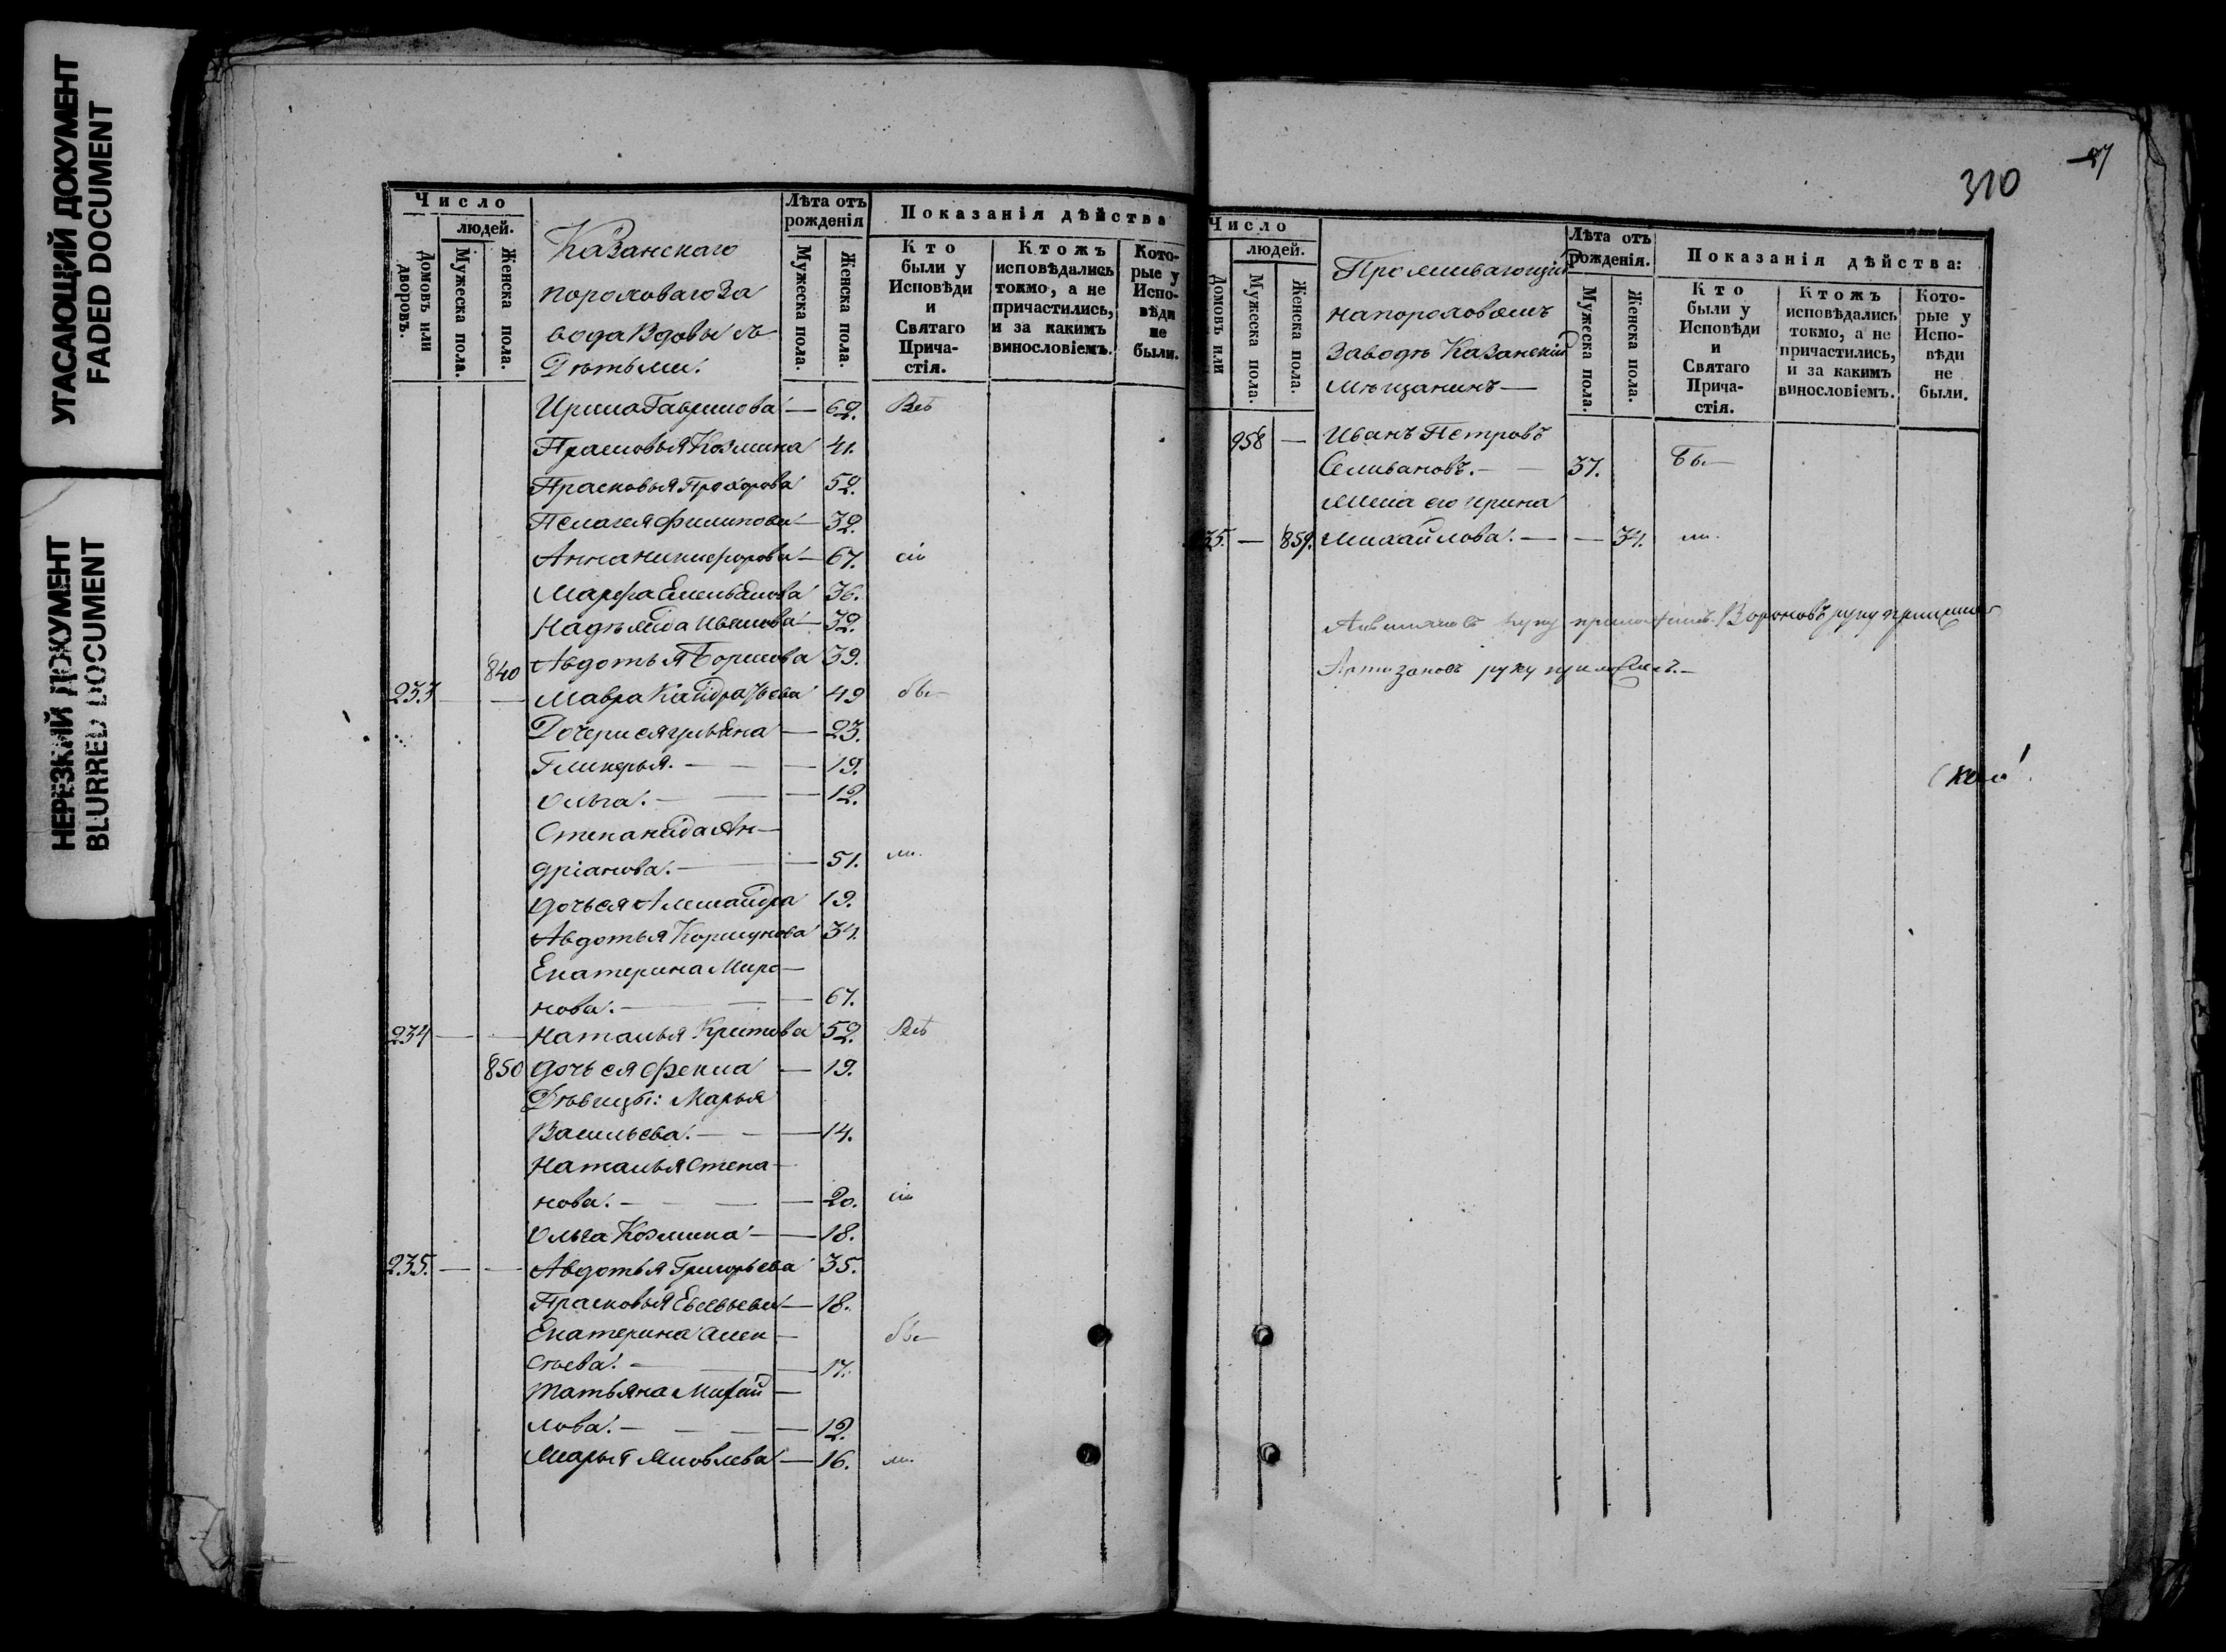 УГАСАЮЩИЙ ДОКУМЕНТ
FADED DOCUMENT
НЕРЕЗКИЙ ДОКУМЕНТ
BLURRED DOCUMENT
Число
людей.
Домовъ или дворовъ.
Мужеска пола.
Женска пола.
Казанскаго
пороховаго За
вода Вдовы съ
Дѣтьми.
Лѣта отъ рожденія
Мужеска пола.
Женска пола.
Показанія дѣйства
Кто были у Исповѣди и Святаго Прича-стія.
Ктожъ исповѣдались токмо, а не причастились, и за какимъ винословіемъ.
Кото-рые у Испо-вѣди не были.
Ирина Гаврилова — 62. Всѣ
Прасковья Козмина 41.
Прасковья Прохорова 52.
Пелагея Филипова — 32.
Анна Никифорова — 67. сіи
Марфа Емельянова 36.
Надежда Иванова — 32.
840 Авдотья Борисова 39.
233 — — Мавра Кандратьева 49 бы—
Дочери ея Ульяна — 23.
Гликерья. — — 19.
Ольга. — — 12.
Степанида Ан—
дріанова. — — 51. ли.
Дочь ея Александра 19.
Авдотья Коршунова 34.
Екатерина Миро—
нова. — — 67.
234 — — Наталья Критова 52. Всѣ
850 Дочь ея Фекла — 19.
Дѣвицы: Марья
Васильева. — — 14.
Наталья Степа—
нова. — — 20. сіи
Ольга Козмина — 18.
235. — — Авдотья Григорьева 35.
Прасковья Евсевьева — 18.
Екатерина Алек— бы—
сѣева. — — 17.
Татьяна Михай—
лова. — — 12.
Марья Яковлева — 16. ли.
310
Число
людей.
Домовъ или
Мужеска пола.
Женска пола.
Проживающій
на пороховомъ
заводѣ Казанскій
мѣщанинъ —
Лѣта отъ рожденія.
Мужеска пола.
Женска пола.
Показанія дѣйства:
Кто были у Исповѣди и Святаго Прича-стія.
Ктожъ исповѣдались токмо, а не причастились, и за какимъ винословіемъ.
Кото-рые у Испо-вѣди не были.
958 — Иванъ Петровъ
Селивановъ. — — 37. бы—
жена его Ирина
235. — 859. Михайлова. — — 34. ли.
руку приложилъ. Вороновъ руку приложилъ
Артизановъ руку приложилъ. —